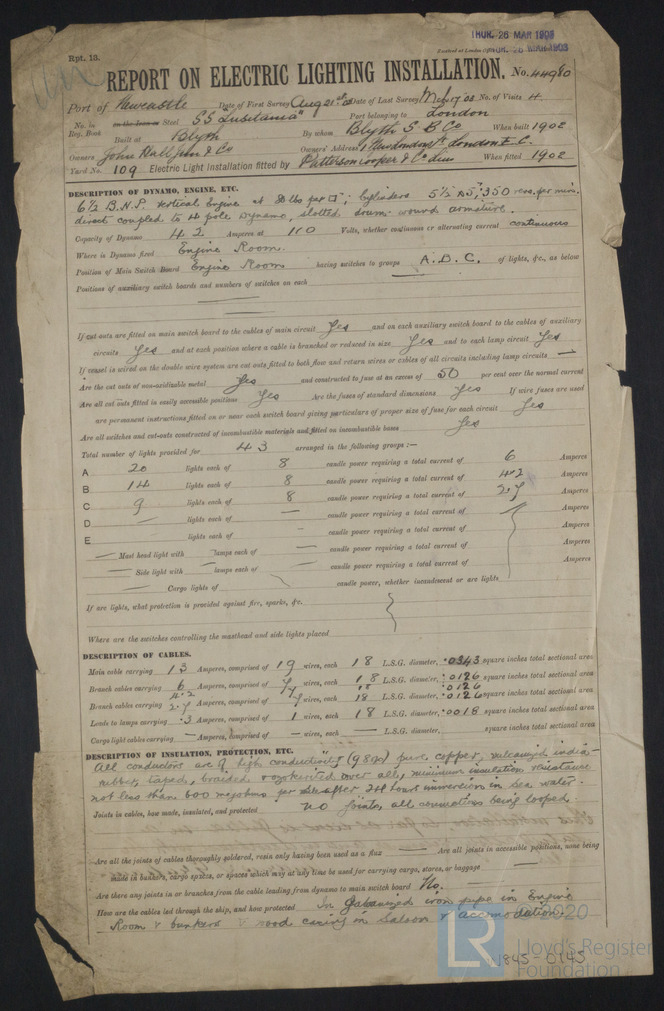 THUR. 26 MAR 1903
Rpt. 13.
Received at London Office THUR. 26 MAR 1903
REPORT ON ELECTRIC LIGHTING INSTALLATION. No. 44980
Port of Newcastle Date of First Survey Aug 21st 02 Date of Last Survey Mch 17 '03 No. of Visits 4
No. in on the Iron or Steel SS "Lusitania" Port belonging to London
Reg. Book Built at Blyth By whom Blyth S B Co When built 1902
Owners John Hall Jun & Co Owners' Address 1 New London St London E.C.
Yard No. 109 Electric Light Installation fitted by Patterson Cooper & Co Lim When fitted 1902
DESCRIPTION OF DYNAMO, ENGINE, ETC.
6½ B.H.P. vertical Engine at 80 lbs per □"; Cylinders 5½ x 5", 350 revs. per min.
direct coupled to 4 pole dynamo, slotted drum wound armature.
Capacity of Dynamo 42 Amperes at 110 Volts, whether continuous or alternating current continuous
Where is Dynamo fixed Engine Room.
Position of Main Switch Board Engine Room having switches to groups A. B. C. of lights, &c., as below
Positions of auxiliary switch boards and numbers of switches on each
—
If cut outs are fitted on main switch board to the cables of main circuit Yes and on each auxiliary switch board to the cables of auxiliary
circuits Yes and at each position where a cable is branched or reduced in size Yes and to each lamp circuit Yes
If vessel is wired on the double wire system are cut outs fitted to both flow and return wires or cables of all circuits including lamp circuits —
Are the cut outs of non-oxidizable metal Yes and constructed to fuse at an excess of 50 per cent over the normal current
Are all cut outs fitted in easily accessible positions Yes Are the fuses of standard dimensions Yes If wire fuses are used
are permanent instructions fitted on or near each switch board giving particulars of proper size of fuse for each circuit Yes
Are all switches and cut-outs constructed of incombustible materials and fitted on incombustible bases Yes
Total number of lights provided for 43 arranged in the following groups:—
A 20 lights each of 8 candle power requiring a total current of 6 Amperes
B 14 lights each of 8 candle power requiring a total current of 4.2 Amperes
C 9 lights each of 8 candle power requiring a total current of 2.7 Amperes
D — lights each of — candle power requiring a total current of Amperes
E lights each of — candle power requiring a total current of Amperes
— Mast head light with — lamps each of — candle power requiring a total current of Amperes
— Side light with — lamps each of — candle power requiring a total current of Amperes
— Cargo lights of candle power, whether incandescent or arc lights
If arc lights, what protection is provided against fire, sparks, &c.
Where are the switches controlling the masthead and side lights placed
DESCRIPTION OF CABLES.
Main cable carrying 13 Amperes, comprised of 19 wires, each 18 L.S.G. diameter, .0343 square inches total sectional area
Branch cables carrying 6 Amperes, comprised of 7 wires, each 18 L.S.G. diameter, .0126 square inches total sectional area
4.2 7 18 .0126
Branch cables carrying 2.7 Amperes, comprised of 7 wires, each 18 L.S.G. diameter, .0126 square inches total sectional area
Leads to lamps carrying .3 Amperes, comprised of 1 wires, each 18 L.S.G. diameter, .0018 square inches total sectional area
Cargo light cables carrying — Amperes, comprised of — wires, each — L.S.G. diameter, square inches total sectional area
DESCRIPTION OF INSULATION, PROTECTION, ETC.
All conductors are of high conductivity (98%) pure copper, vulcanized india-
rubber, taped, braided & varnished over all, minimum insulation resistance
not less than 600 megohms per mile after 24 hours immersion in sea water.
Joints in cables, how made, insulated, and protected No joints, all connections being looped.
Are all the joints of cables thoroughly soldered, resin only having been used as a flux — Are all joints in accessible positions, none being
made in bunkers, cargo spaces, or spaces which may at any time be used for carrying cargo, stores, or baggage —
Are there any joints in or branches from the cable leading from dynamo to main switch board No.
How are the cables led through the ship, and how protected In Galvanized iron pipe in Engine
Room & bunkers & wood casing in Saloon & accomodation.
© 2020
LR Lloyd's Register
Foundation
W845-0145